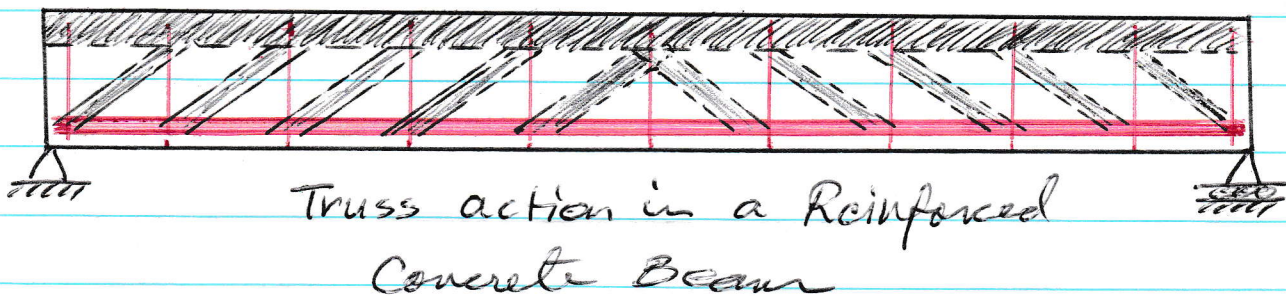 Truss action in a Reinforced
Concrete Beam